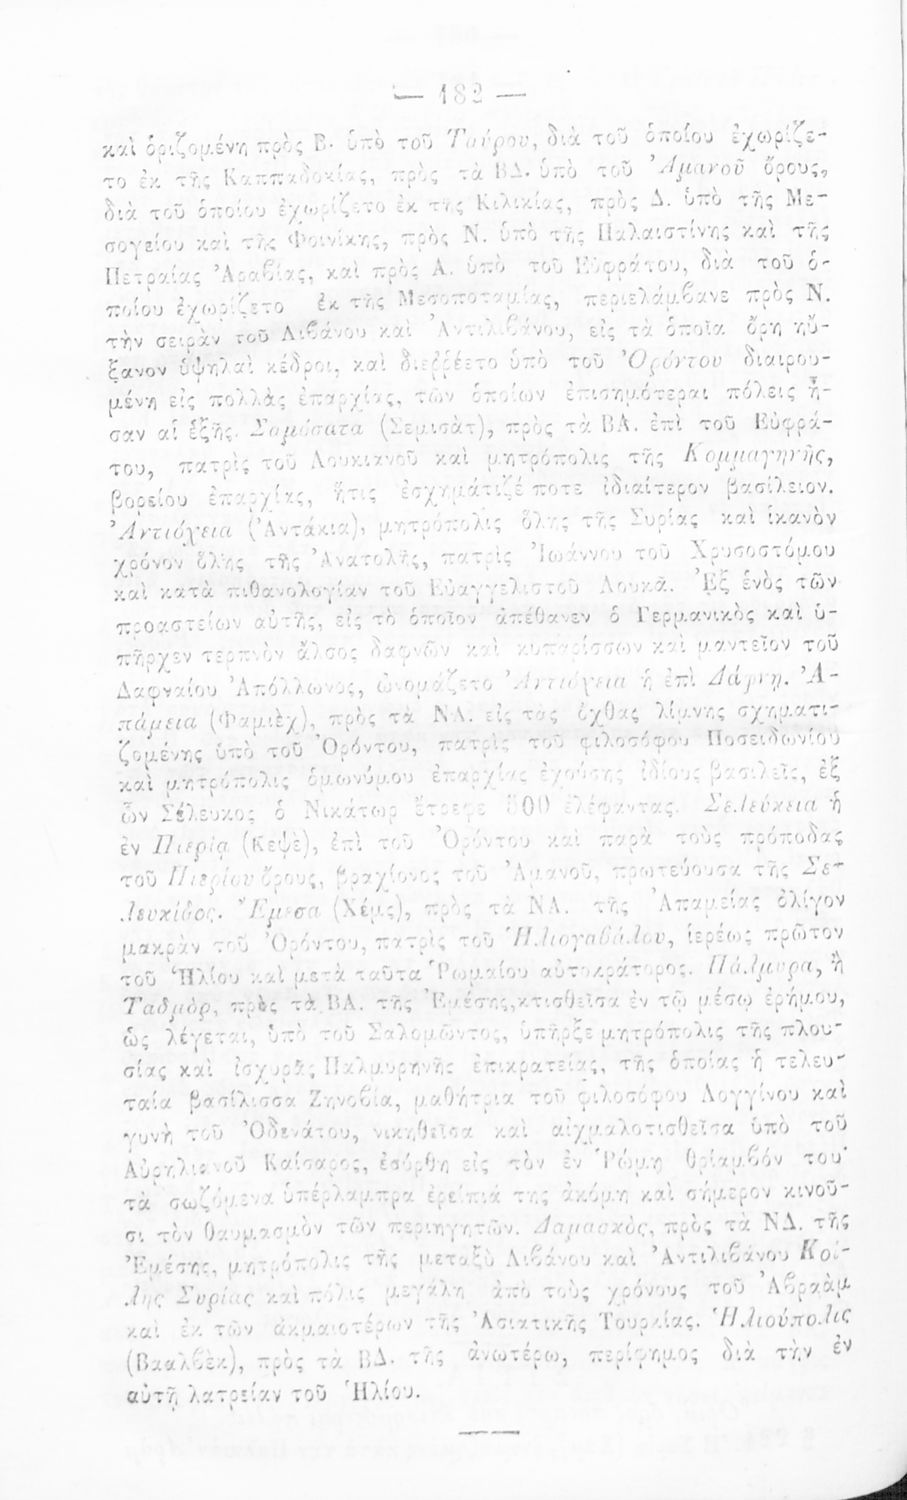 — 182 —
καὶ ὁριζομένη πρὸς Β. ὑπὸ τοῦ Ταύρου, διὰ τοῦ ὁποίου ἐχωρίζε-
το ἐκ τῆς Καππαδοκίας, πρὸς τὰ ΒΔ. ὑπὸ τοῦ Ἀμανοῦ ὄρους,
διὰ τοῦ ὁποίου ἐχωρίζετο ἐκ τῆς Κιλικίας, πρὸς Δ. ὑπὸ τῆς Με-
σογείου καὶ τῆς Φοινίκης, πρὸς Ν. ὑπὸ τῆς Παλαιστίνης καὶ τῆς
Πετραίας Ἀραβίας, καὶ πρὸς Α. ὑπὸ τοῦ Εὐφράτου, διὰ τοῦ ὁ-
ποίου ἐχωρίζετο ἐκ τῆς Μεσοποταμίας, περιελάμβανε πρὸς Ν.
τὴν σειρὰν τοῦ Λιβάνου καὶ Ἀντιλιβάνου, εἰς τὰ ὁποῖα ὄρη ηὔ-
ξανον ὑψηλαὶ κέδροι, καὶ διεῤῥέετο ὑπὸ τοῦ Ὀρόντου διαιρου-
μένη εἰς πολλὰς ἐπαρχίας, τῶν ὁποίων ἐπισημότεραι πόλεις ἦ-
σαν αἱ ἑξῆς. Σαμόσατα (Σεμισὰτ), πρὸς τὰ ΒΑ. ἐπὶ τοῦ Εὐφρά-
του, πατρὶς τοῦ Λουκιανοῦ καὶ μητρόπολις τῆς Κομμαγηνῆς,
βορείου ἐπαρχίας, ἥτις ἐσχημάτιζέ ποτε ἰδιαίτερον βασίλειον.
Ἀντιόχεια (Ἀντάκια), μητρόπολις ὅλης τῆς Συρίας καὶ ἱκανὸν
χρόνον ὅλης τῆς Ἀνατολῆς, πατρὶς Ἰωάννου τοῦ Χρυσοστόμου
καὶ κατὰ πιθανολογίαν τοῦ Εὐαγγελιστοῦ Λουκᾶ. Ἐξ ἑνὸς τῶν
προαστείων αὐτῆς, εἰς τὸ ὁποῖον ἀπέθανεν ὁ Γερμανικὸς καὶ ὑ-
πῆρχεν τερπνὸν ἄλσος δαφνῶν καὶ κυπαρίσσων καὶ μαντεῖον τοῦ
Δαφναίου Ἀπόλλωνος, ὠνομάζετο Ἀντιόχεια ἡ ἐπὶ Δάφνῃ. Ἀ-
πάμεια (Φαμιὲχ), πρὸς τὰ ΝΑ. εἰς τὰς ὄχθας λίμνης σχηματι-
ζομένης ὑπὸ τοῦ Ὀρόντου, πατρὶς τοῦ φιλοσόφου Ποσειδωνίου
καὶ μητρόπολις ὁμωνύμου ἐπαρχίας ἐχούσης ἰδίους βασιλεῖς, ἐξ
ὧν Σέλευκος ὁ Νικάτωρ ἔτρεφε 500 ἐλέφαντας. Σελεύκεια ἡ
ἐν Πιερίᾳ (Κεψὲ), ἐπὶ τοῦ Ὀρόντου καὶ παρὰ τοὺς πρόποδας
τοῦ Πιερίου ὄρους, βραχίονος τοῦ Ἀμανοῦ, πρωτεύουσα τῆς Σε-
λευκίδος. Ἔμεσα (Χέμς), πρὸς τὰ ΝΑ. τῆς Ἀπαμείας ὀλίγον
μακρὰν τοῦ Ὀρόντου, πατρὶς τοῦ Ἡλιογαβάλου, ἱερέως πρῶτον
τοῦ Ἡλίου καὶ μετὰ ταῦτα Ῥωμαίου αὐτοκράτορος. Πάλμυρα, ἢ
Ταδμὸρ, πρὸς τὰ ΒΑ. τῆς Ἐμέσης, κτισθεῖσα ἐν τῷ μέσῳ ἐρήμου,
ὡς λέγεται, ὑπὸ τοῦ Σαλομῶντος, ὑπῆρξε μητρόπολις τῆς πλου-
σίας καὶ ἰσχυρᾶς Παλμυρηνῆς ἐπικρατείας, τῆς ὁποίας ἡ τελευ-
ταία βασίλισσα Ζηνοβία, μαθήτρια τοῦ φιλοσόφου Λογγίνου καὶ
γυνὴ τοῦ Ὀδενάτου, νικηθεῖσα καὶ αἰχμαλοτισθεῖσα ὑπὸ τοῦ
Αὐρηλιανοῦ Καίσαρος, ἐσύρθη εἰς τὸν ἐν Ῥώμῃ θρίαμβόν του·
τὰ σωζόμενα ὑπέρλαμπρα ἐρείπιά της ἀκόμη καὶ σήμερον κινοῦ-
σι τὸν θαυμασμὸν τῶν περιηγητῶν. Δαμασκὸς, πρὸς τὰ ΝΔ. τῆς
Ἐμέσης, μητρόπολις τῆς μεταξὺ Λιβάνου καὶ Ἀντιλιβάνου Κοί-
λης Συρίας καὶ πόλις μεγάλη ἀπὸ τοὺς χρόνους τοῦ Ἀβραὰμ
καὶ ἐκ τῶν ἀκμαιοτέρων τῆς Ἀσιατικῆς Τουρκίας. Ἡλιούπολις
(Βααλβὲκ), πρὸς τὰ ΒΔ. τῆς ἀνωτέρω, περίφημος διὰ τὴν ἐν
αὐτῇ λατρείαν τοῦ Ἡλίου.